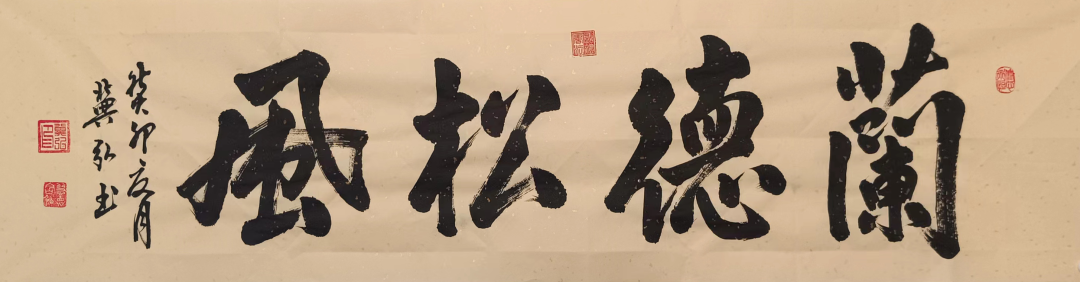 蘭德松風
癸卯夏月
冀弘书